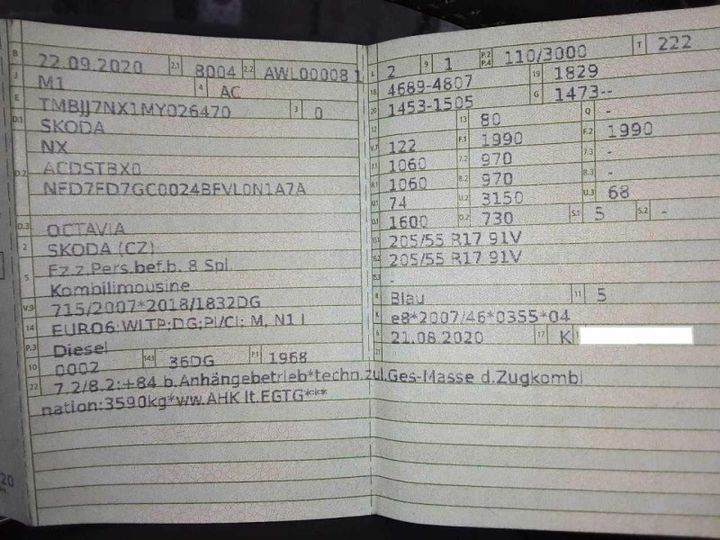 B 22.09.2020 2.1 8004 2.2 AWL00008 1
J M1 4 AC
E TMBJJ7NX1MY026470 3 0
D.1 SKODA
NX
D.2 ACDSTBX0
NFD7FD7GC0024BFVL0N1A7A
D.3 OCTAVIA
2 SKODA (CZ)
5 Fz.z.Pers.bef.b. 8 Spl.
Kombilimousine
V.9 715/2007*2018/1832DG
14 EURO6;WLTP;DG;PI/CI; M, N1 I
P.3 Diesel
10 0002 14.1 36DG P.1 1968
22 7.2/8.2:+84 b.Anhängebetrieb*techn.zul.Ges-Masse d.Zugkombi
nation:3590kg*ww.AHK lt.EGTG***
L 2 9 1 P.2 P.4 110/3000 T 222
18 4689-4807 19 1829
20 1453-1505 G 1473--
13 80 Q -
V.7 122 F.1 1990 F.2 1990
7.1 1060 7.2 970 7.3 -
8.1 1060 8.2 970 8.3 -
U.1 74 U.2 3150 U.3 68
O.1 1600 O.2 730 S.1 5 S.2 -
15.1 205/55 R17 91V
15.2 205/55 R17 91V
15.3 -
R Blau 11 5
K e8*2007/46*0355*04
6 21.08.2020 17 K
21
20